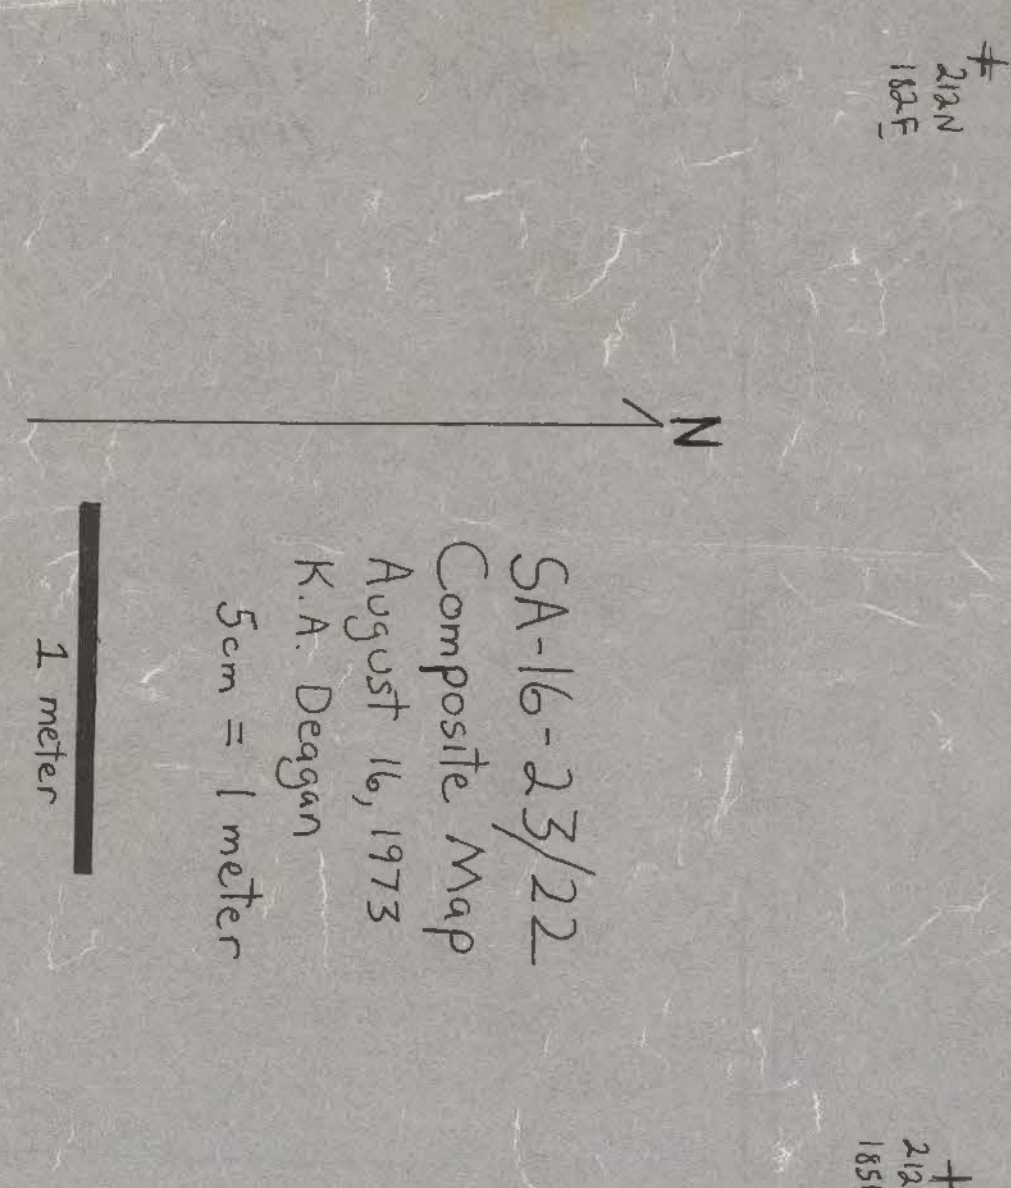 212N
182E
N
SA-16-23/22
Composite Map
August 16, 1973
K.A. Deagan
5cm = 1 meter
1 meter
212
185